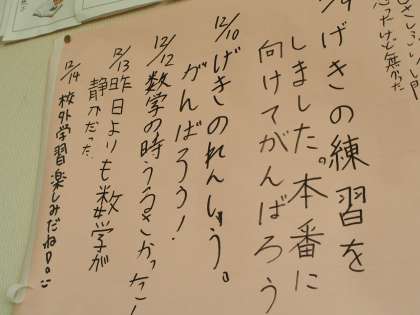 12/9 げきの練習を
しました。本番に
向けてがんばろう
12/10 げきのれんしゅう。
がんばろう!
12/12 数学の時うるさかった!
12/13 昨日よりも数学が
静かだった。
12/14 校外学習楽しみだね